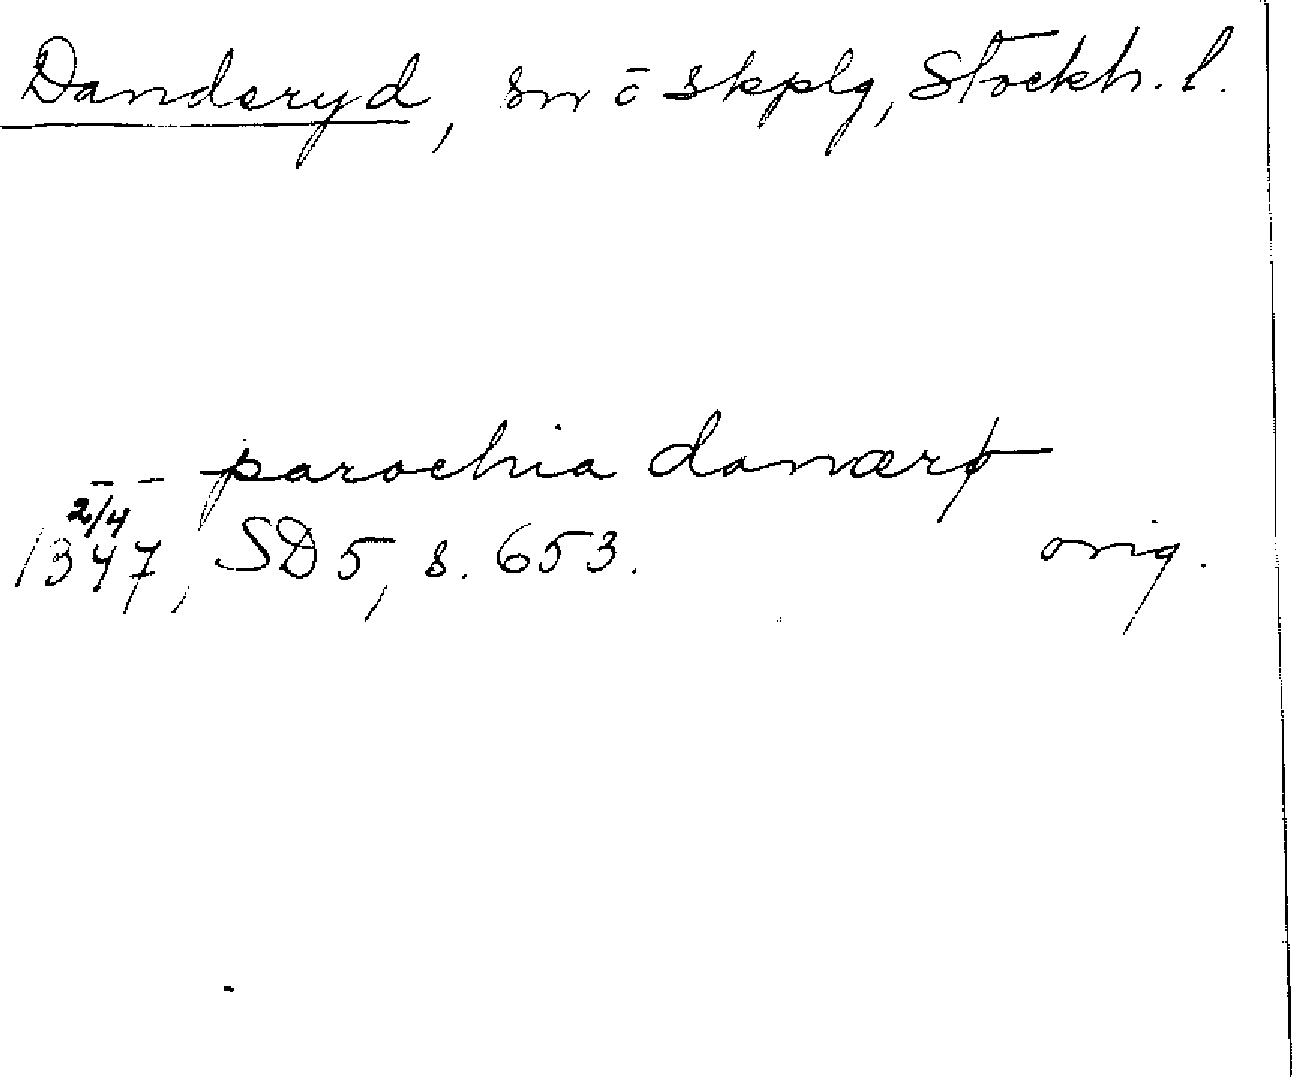 Danderyd, sn o skplg, Stockh. l.
-- parochia danærø
2/4
1347, SD 5, s. 653. orig.